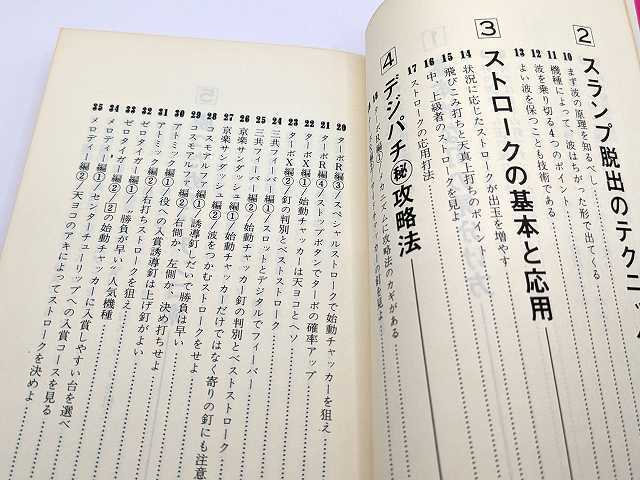 2 スランプ脱出のテクニック
10 まず波の原理を知るべし
11 機種によって、波はちがった形で出てくる
12 波を乗り切る4つのポイント
13 よい波を保つことも技術である
3 ストロークの基本と応用
14 状況に応じたストロークが出玉を増やす
15 飛びこみ打ちと天真上打ちのポイント
16 中、上級者のストロークを見よ
17 ストロークの応用打法
4 デジパチ㊙攻略法
18 ターボR編①
カニズムに攻略法のカギがある
の釘を見よ
20 ターボR編③/スペシャルストロークで始動チャッカーを狙え
21 ターボR編④/ストップボタンでターボの確率アップ
22 ターボX編①/始動チャッカーは天ヨコとヘソ
23 ターボX編②/釘の判別とベストストローク
24 三共フィーバー編①/スロットとデジタルでフィーバー
25 三共フィーバー編②/始動チャッカー釘の判別とベストストローク
26 京楽サンダッシュ編①/始動チャッカーだけではなく寄りの釘にも注意
27 京楽サンダッシュ編②/波をつかむストロークをせよ
28 コスモアルファ編①/誘導釘しだいで勝負は早い
29 コスモアルファ編②/右側か、左側か、決め打ちせよ
30 アトミック編①/役への入賞誘導釘は上げ釘がよい
31 アトミック編②/右打ちストロークを狙え
32 ゼロタイガー編①/"勝負が早い"人気機種
33 ゼロタイガー編②/2の始動チャッカーに入賞しやすい台を選べ
34 メロディー編①/センターチューリップへの入賞コースを見る
35 メロディー編②/天ヨコのアキによってストロークを決めよ